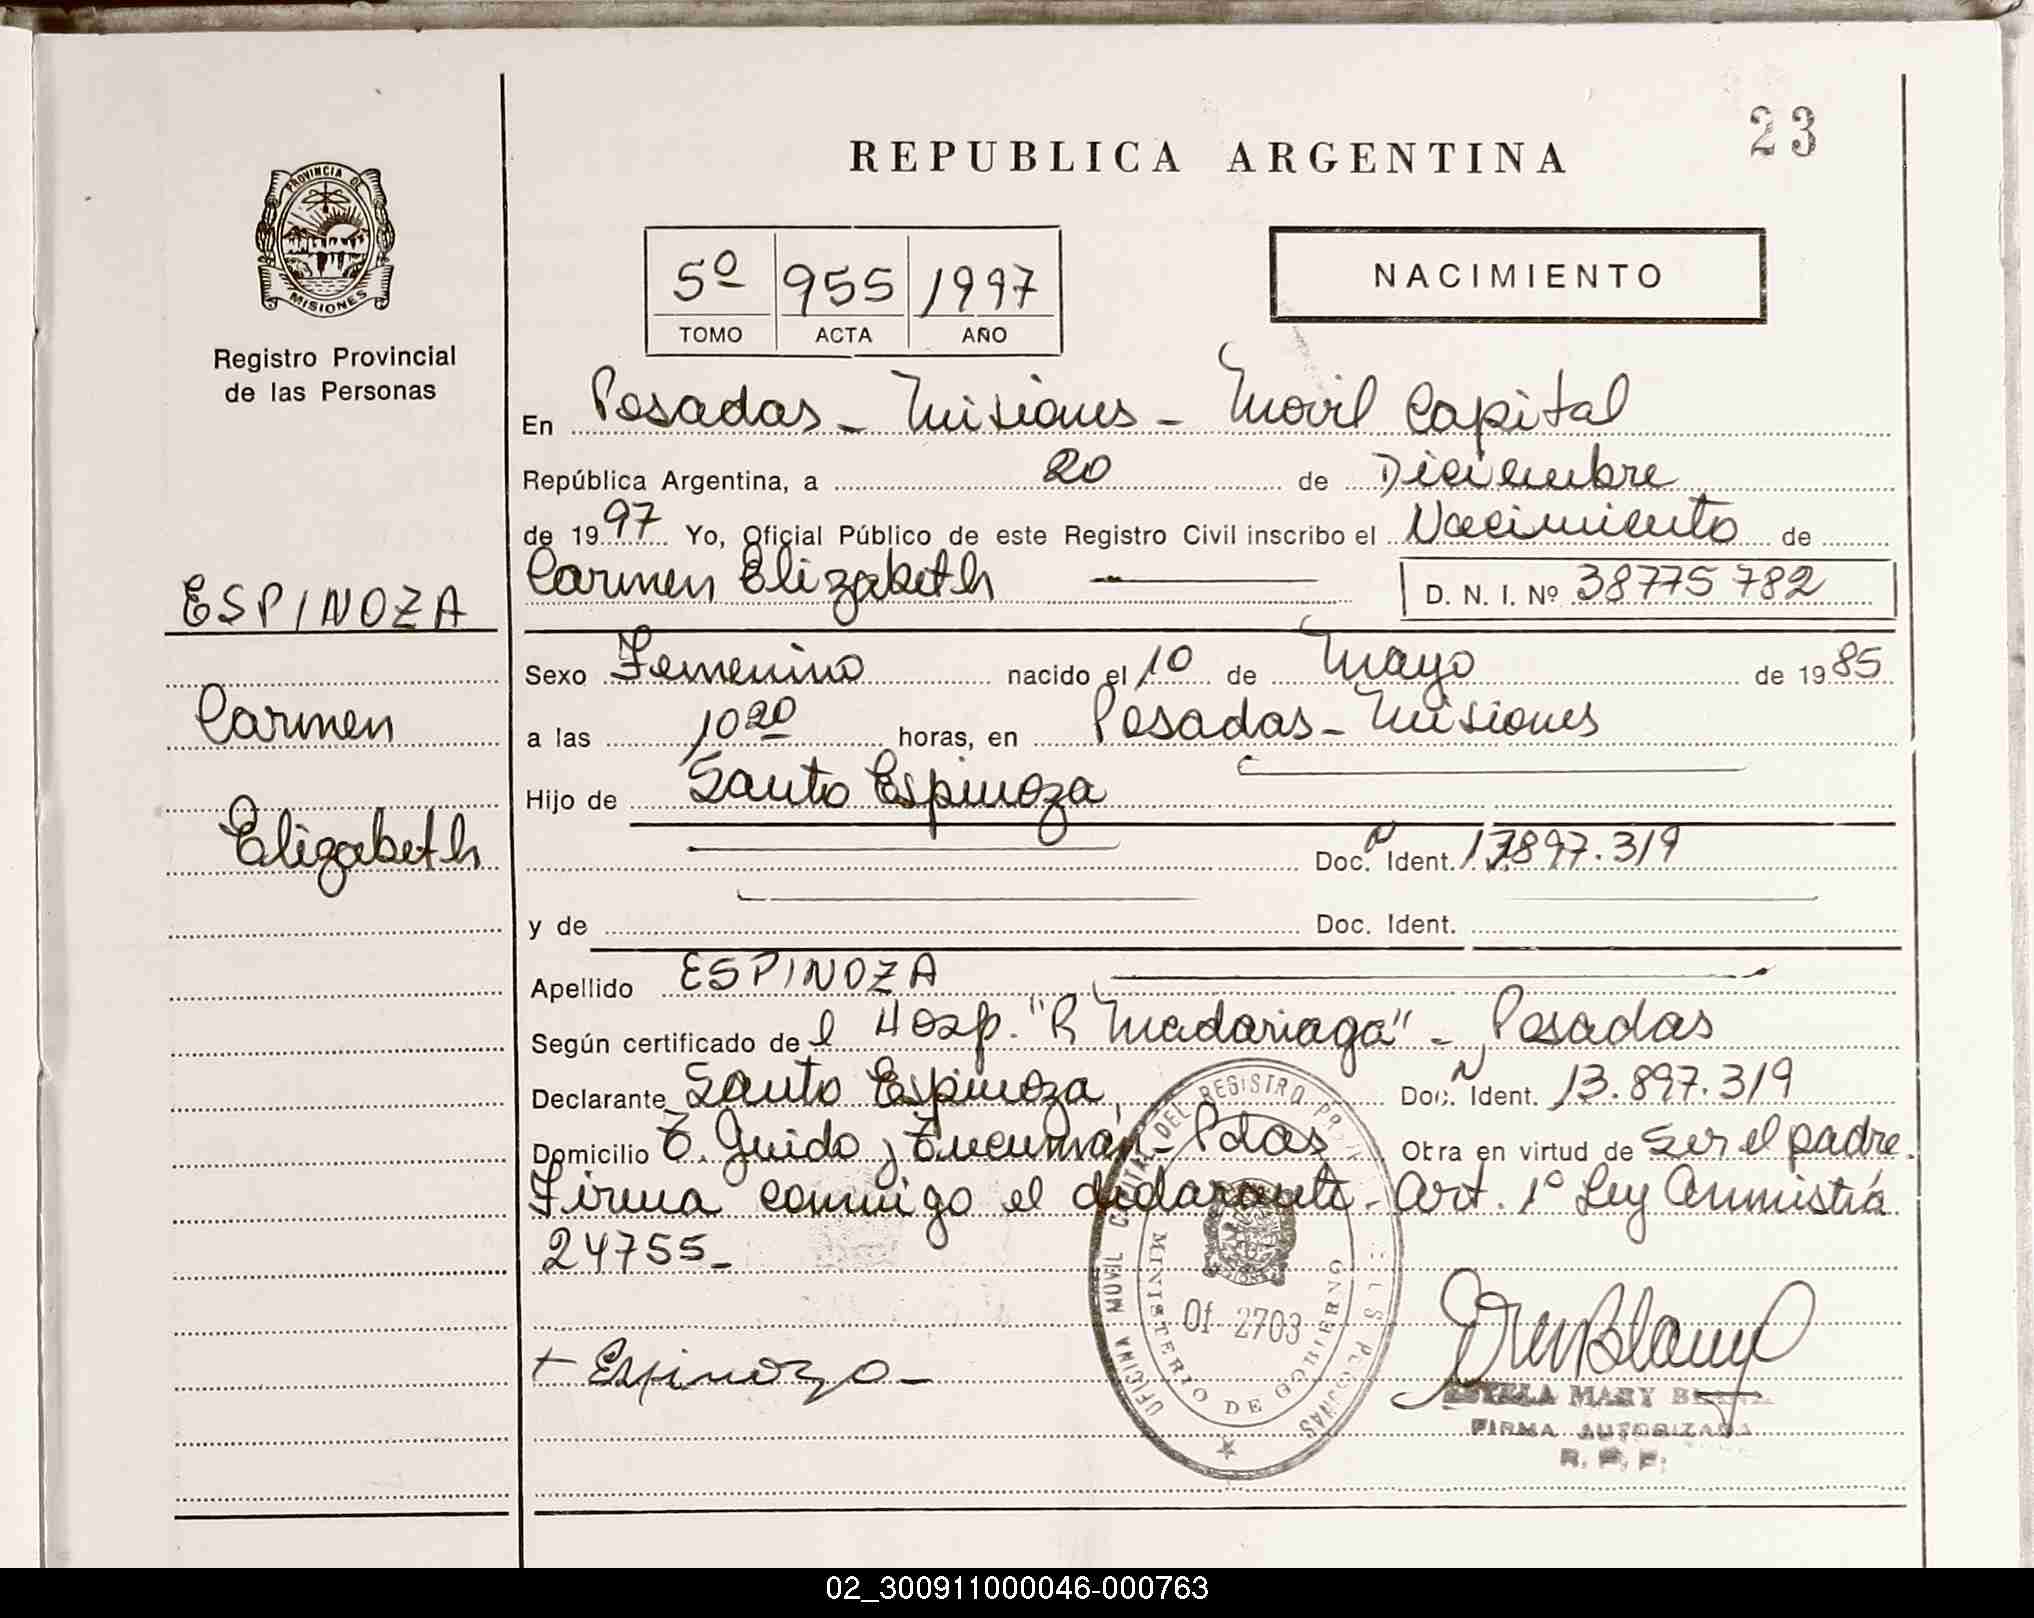 23
REPUBLICA ARGENTINA
PROVINCIA DE
MISIONES
Registro Provincial
de las Personas
5º 955 1997
TOMO ACTA AÑO
NACIMIENTO
En Posadas - Misiones - Movil Capital
República Argentina, a 20 de Diciembre
de 1997 Yo, Oficial Público de este Registro Civil inscribo el Nacimiento de
Carmen Elizabeth
D. N. I. Nº 38775 782
ESPINOZA
Carmen
Elizabeth
Sexo Femenino nacido el 10 de Mayo de 1985
a las 10 20 horas, en Posadas - Misiones
Hijo de Santo Espinoza
Doc. N Ident. 13897.319
y de Doc. Ident.
Apellido ESPINOZA
Según certificado del Hosp. "R Madariaga" - Posadas
Declarante Santo Espinoza Doc. N Ident. 13.897.319
Domicilio T. Guido y Tucumán - Pdas Otra en virtud de ser el padre.
Firma conmigo el declarante - Art. 1º Ley Amnistía
24755 -
+ Espinoza -
OFICINA MOVIL CAPITAL DEL REGISTRO PROV. DE LAS PERSONAS
MINISTERIO DE GOBIERNO
Of 2703
MARY
FIRMA AUTORIZADA
R. P. P.
02_300911000046-000763